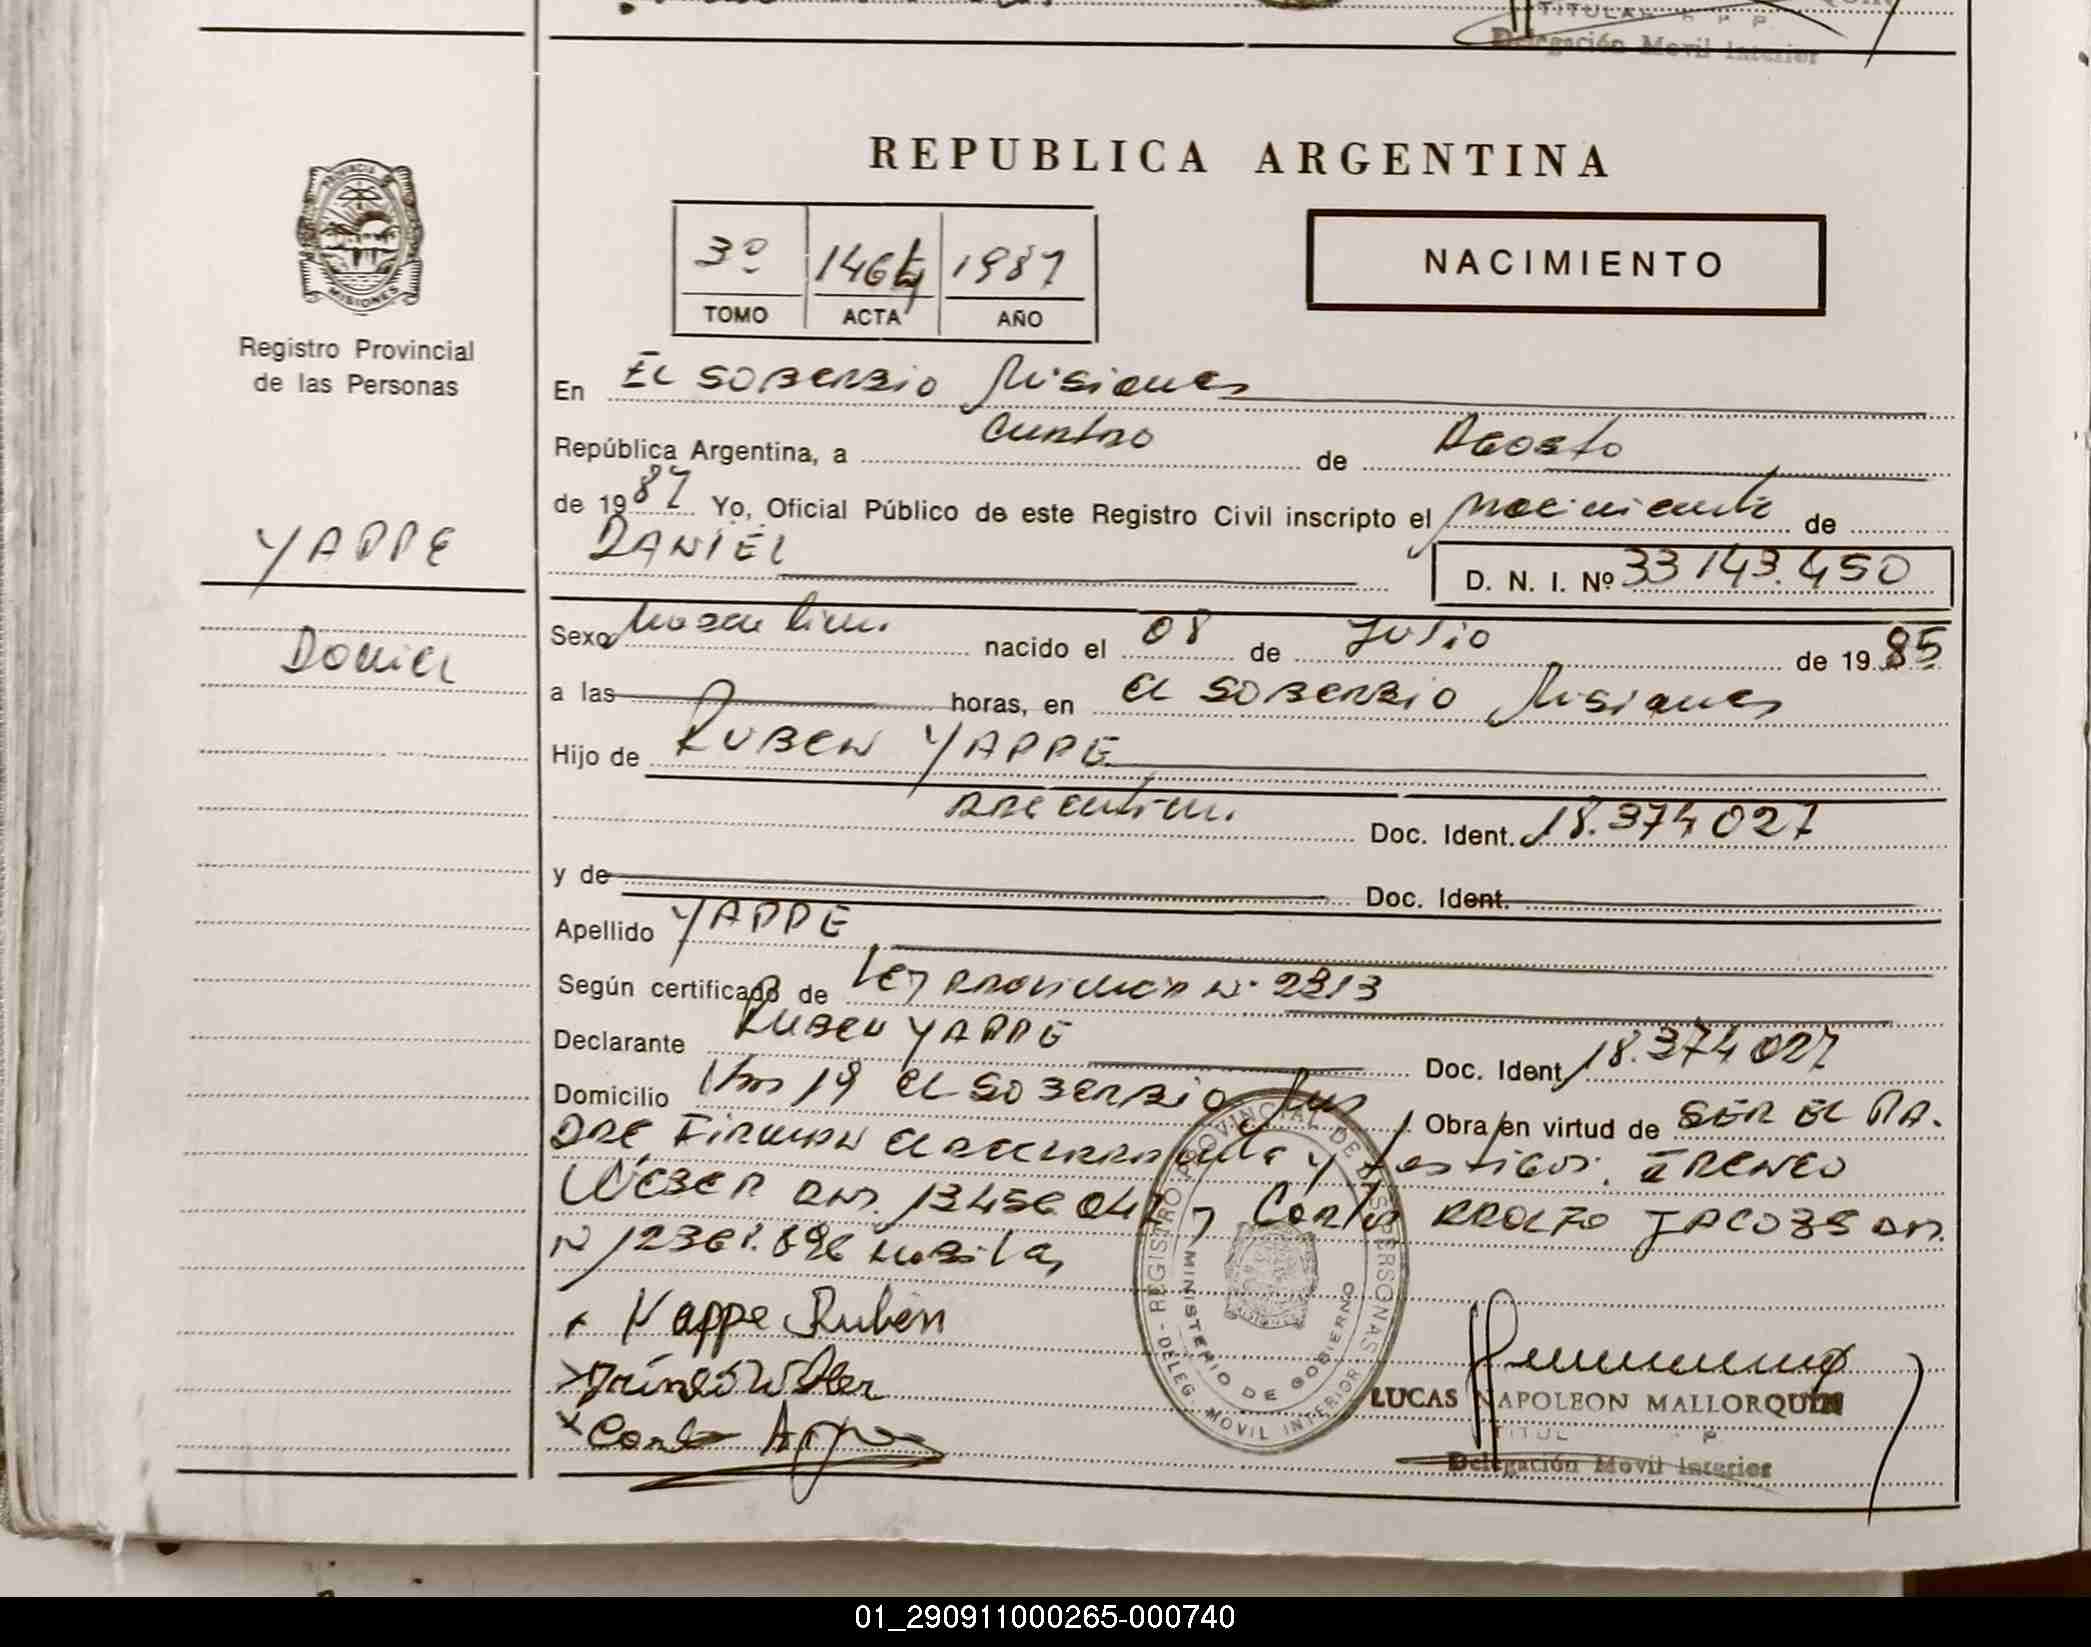 TITULAR R P P
Delegación Movil Interior
REPUBLICA ARGENTINA
3º 1464 1987
TOMO ACTA AÑO
NACIMIENTO
PROVINCIA DE
MISIONES
Registro Provincial
de las Personas
YAPPE
Daniel
En EL SOBERBIO Misiones
República Argentina, a Cuatro de Agosto
de 1987 Yo, Oficial Público de este Registro Civil inscripto el Nacimiento de
DANIEL
D. N. I. Nº 33 143.450
Sexo Masculino nacido el 08 de Julio de 1985
a las horas, en EL SOBERBIO Misiones
Hijo de RUBEN YAPPE
Argentino Doc. Ident. 18.374 027
y de Doc. Ident.
Apellido YAPPE
Según certificado de Ley Provincial N. 2313
Declarante RUBEN YAPPE Doc. Ident 18.374 027
Domicilio Km 19 EL SOBERBIO Mns Obra en virtud de SER EL PA.
DRE Firman el declarante y testigos: IRENEO
WEBER DNI. 13456 047 y Carlos ADOLFO JACOBS DNI.
N 12361.696
Yappe Rubén
REGISTRO PROVINCIAL DE LAS PERSONAS
MINISTERIO DE GOBIERNO
DELEG. MOVIL INTERIOR
LUCAS NAPOLEON MALLORQUIN
TITUL P.
Delegación Movil Interior
01_290911000265-000740